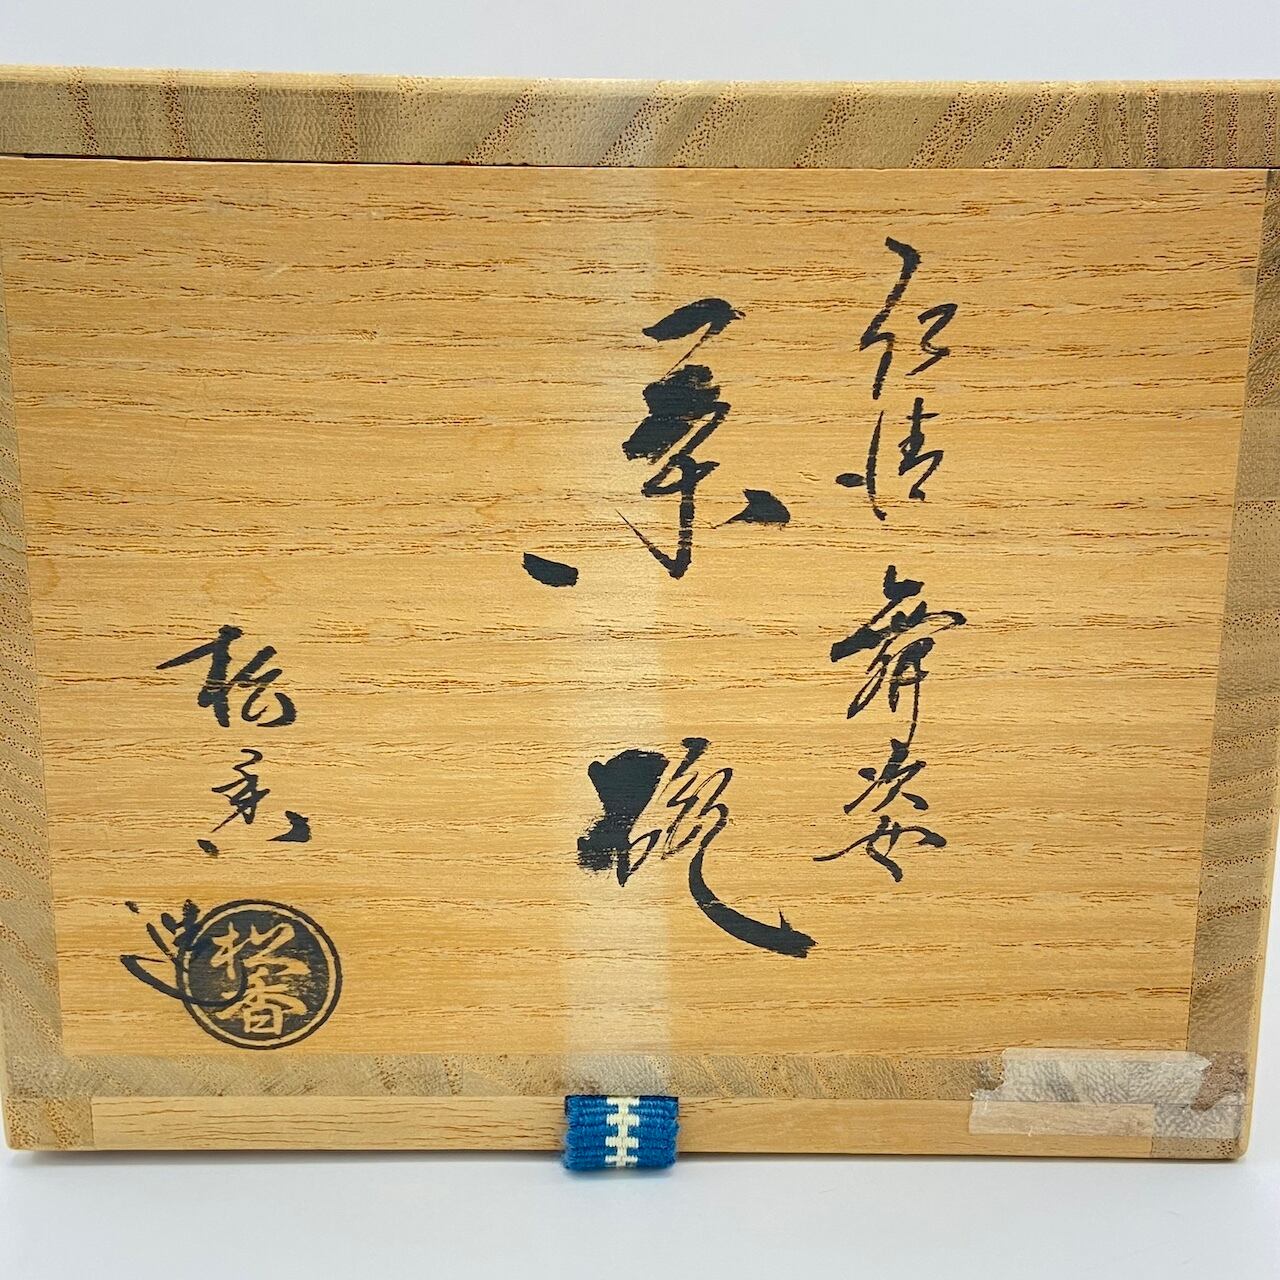 仁清 舞姿
茶碗
松香
造
松香